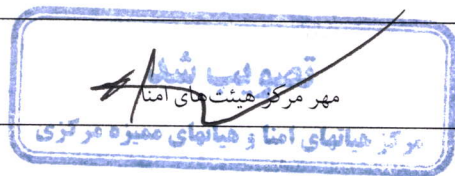 تصویب شد
مهر مرکز هیئت‌های امنا
مرکز هیاتهای امنا و هیاتهای ممیزه مرکزی